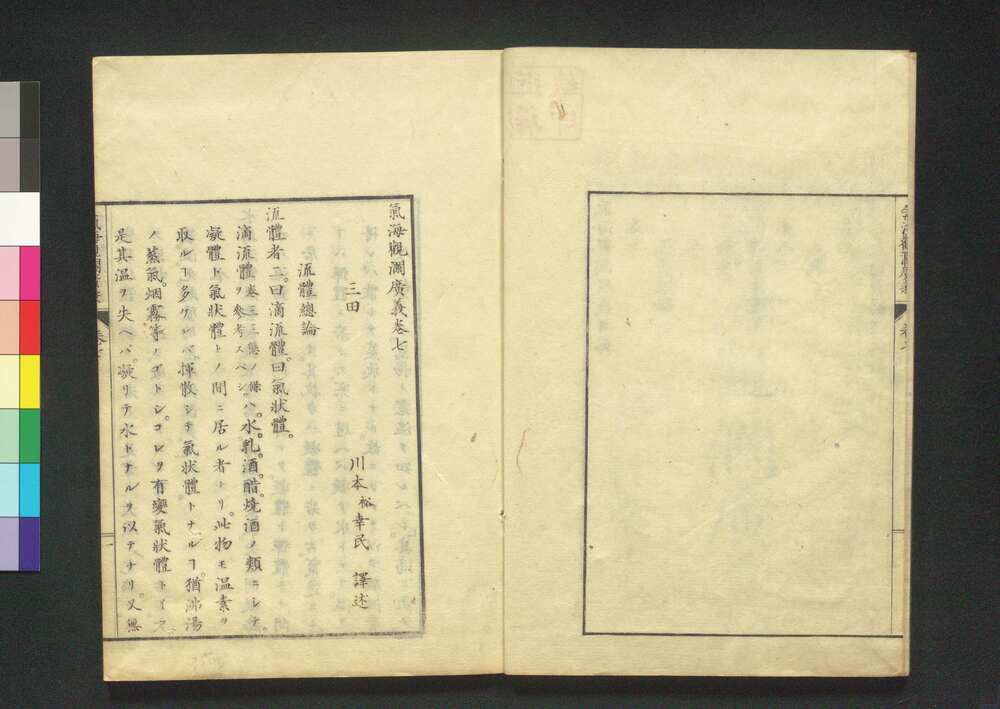 氣海觀瀾廣義卷七
三田　川本裕幸民　譯述
流體總論
流體者二。曰滴流體。曰氣狀體。
滴流體 卷三三態ノ條ヲ參考スベシ ハ。水。乳。酒。醋。燒酒ノ類ニシテ。
凝體ト氣狀體トノ間ニ居ル者トリ。此物モ溫素ヲ
取ルヿ多ケレバ。揮散シテ氣狀體トナル。ヿ猶沸湯
ノ蒸氣。烟霧等ノゴトシ。コレヲ有變氣狀體トイフ。
是其溫ヲ失ヘバ。凝リテ水トナルヲ以テナリ。又無
卷七
一